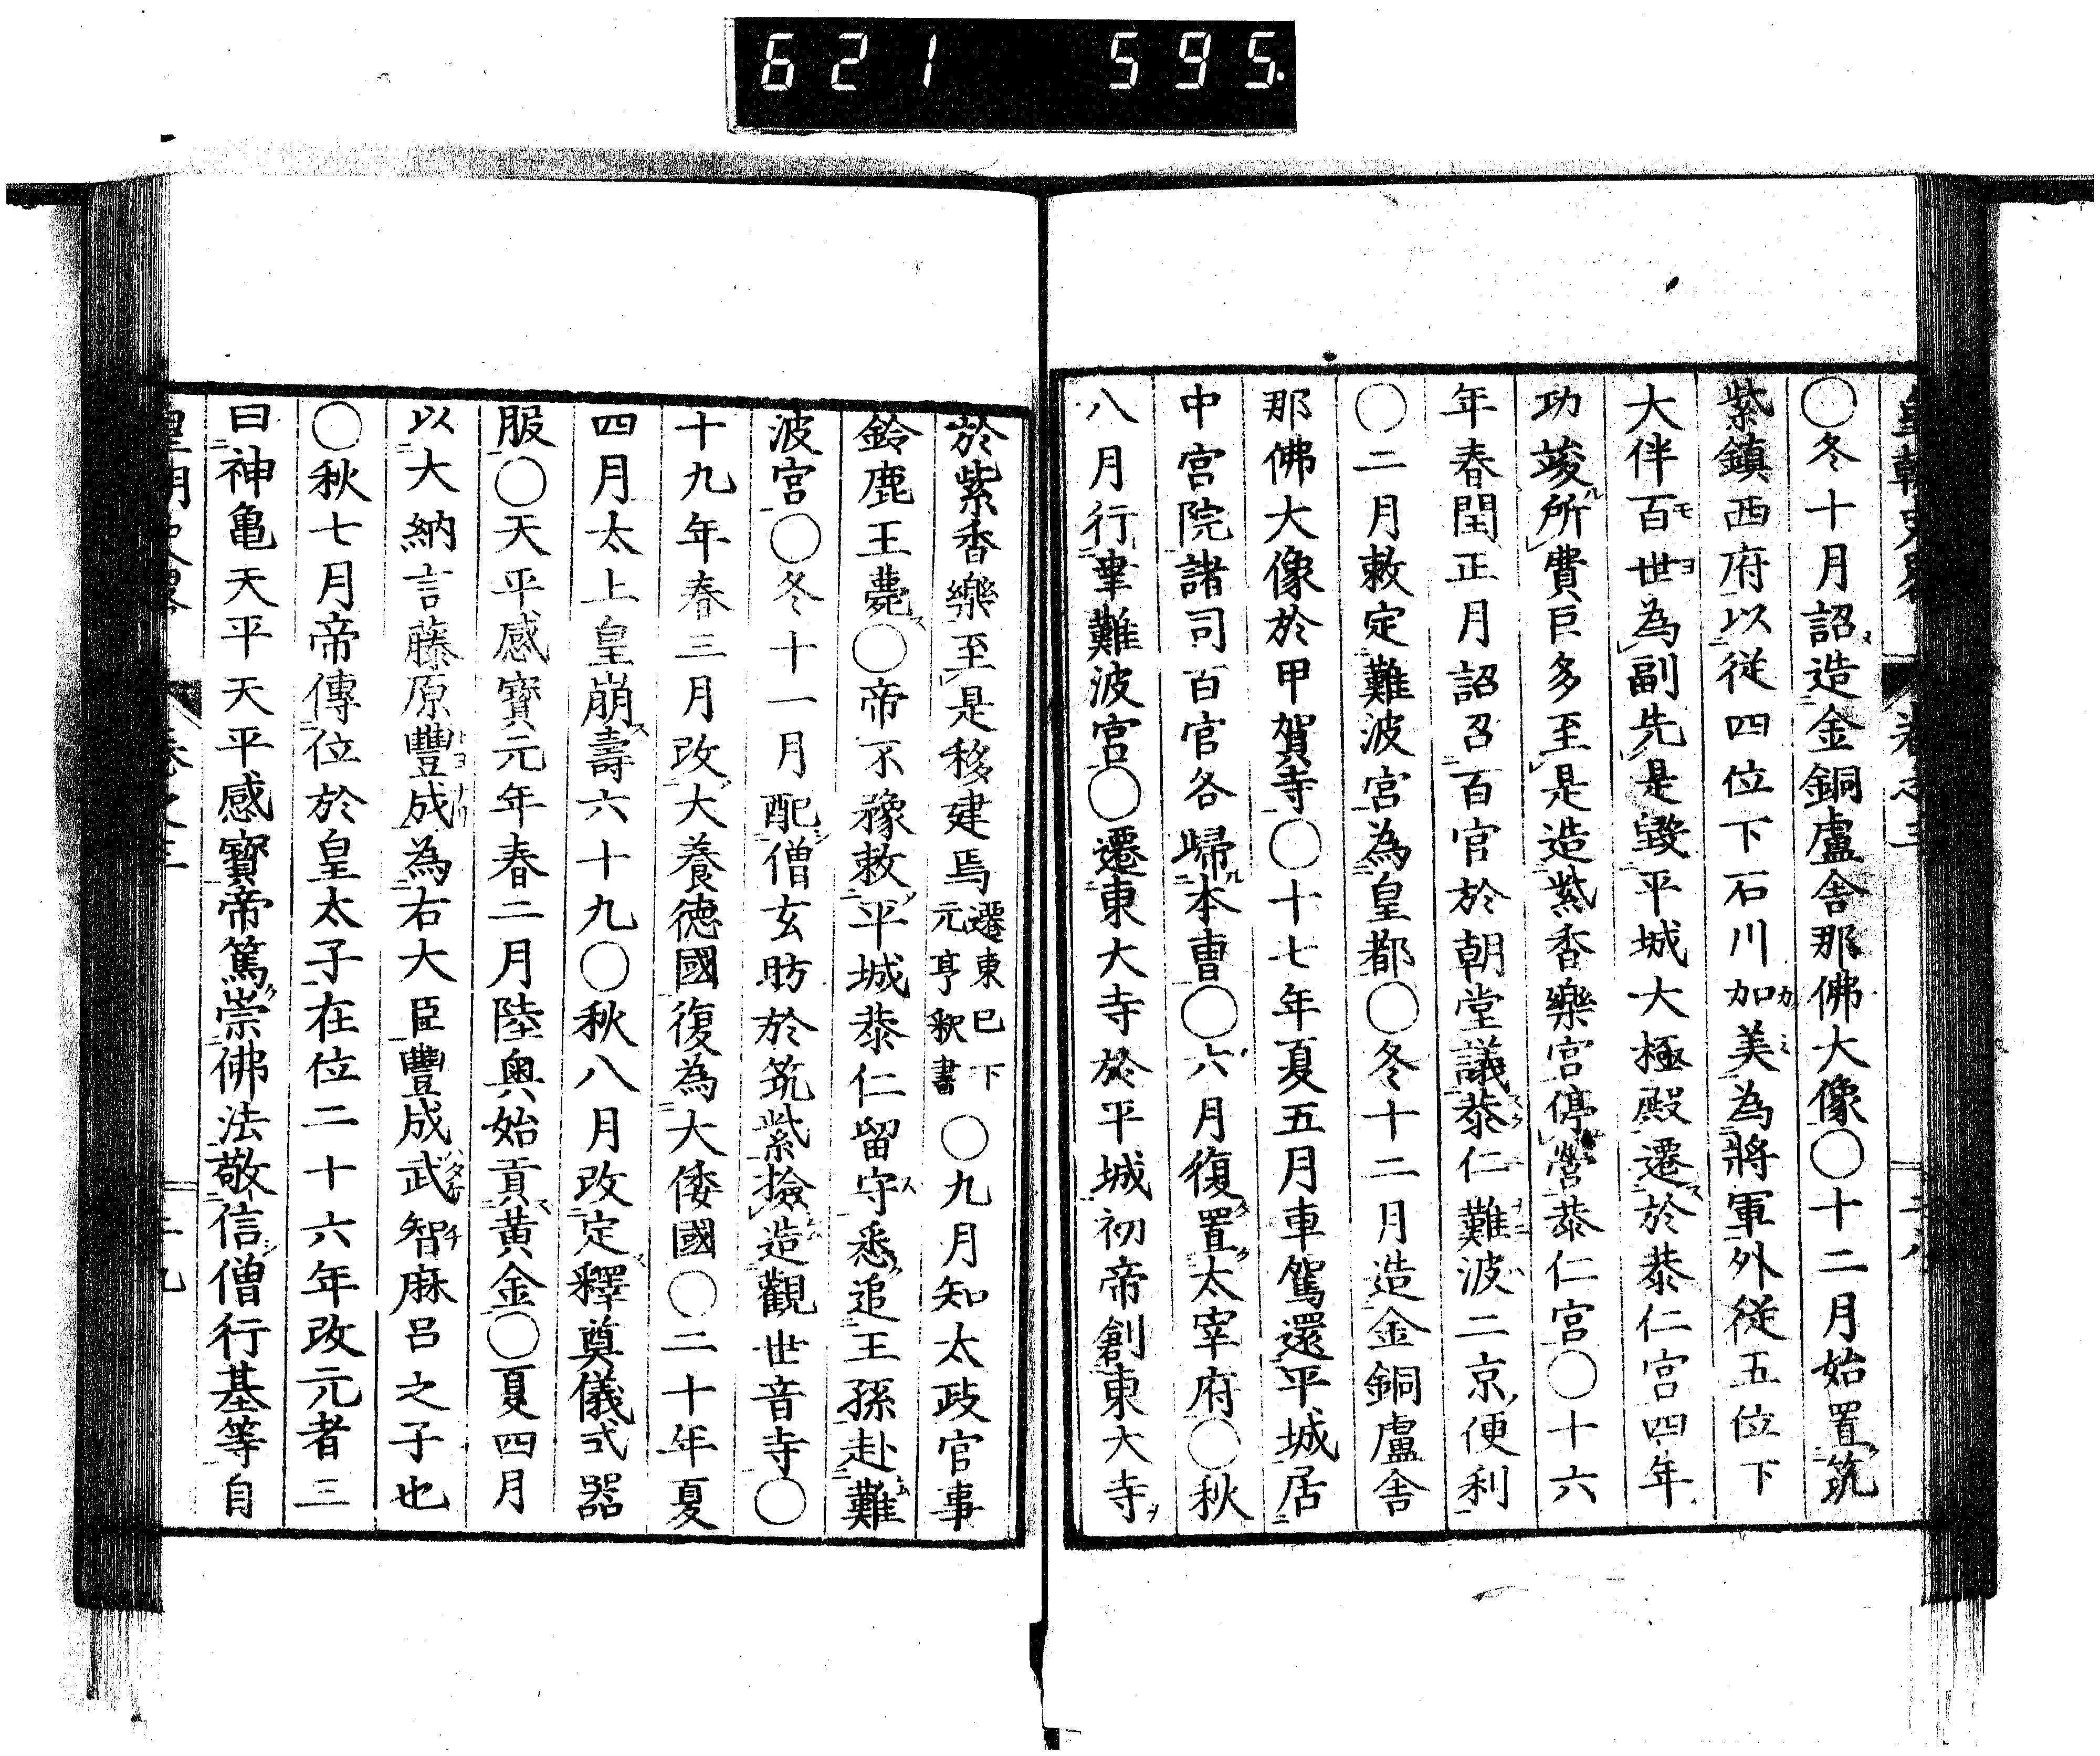 621 595.
〇冬十月詔造金銅盧舎那佛大像〇十二月始置筑
紫鎮西府以従四位下石川加美為將軍外従五位下
大伴百世為副先是毀平城大極殿遷於恭仁宮四年
功竣所費巨多至是造紫香樂宮停營恭仁宮〇十六
年春閏正月詔召百官於朝堂議恭仁難波二京便利
〇二月敕定難波宮為皇都〇冬十二月造金銅盧舎
那佛大像於甲賀寺〇十七年夏五月車駕還平城居
中宮院諸司百官各歸本曹〇六月復置太宰府〇秋
八月行幸難波宮〇遷東大寺於平城初帝創東大寺
於紫香樂至是移建焉遷東已下元亨釈書〇九月知太政官事
鈴鹿王薨〇帝不豫敕平城恭仁留守悉追王孫赴難
波宮〇冬十一月配僧玄昉於筑紫撿造觀世音寺〇
十九年春三月改大養德國復為大倭國〇二十年夏
四月太上皇崩壽六十九〇秋八月改定釋奠儀式器
服〇天平感寶元年春二月陸奥始貢黄金〇夏四月
以大納言藤原豐成為右大臣豐成武智麻呂之子也
〇秋七月帝傳位於皇太子在位二十六年改元者三
曰神亀天平天平感寶帝篤崇佛法敬信僧行基等自